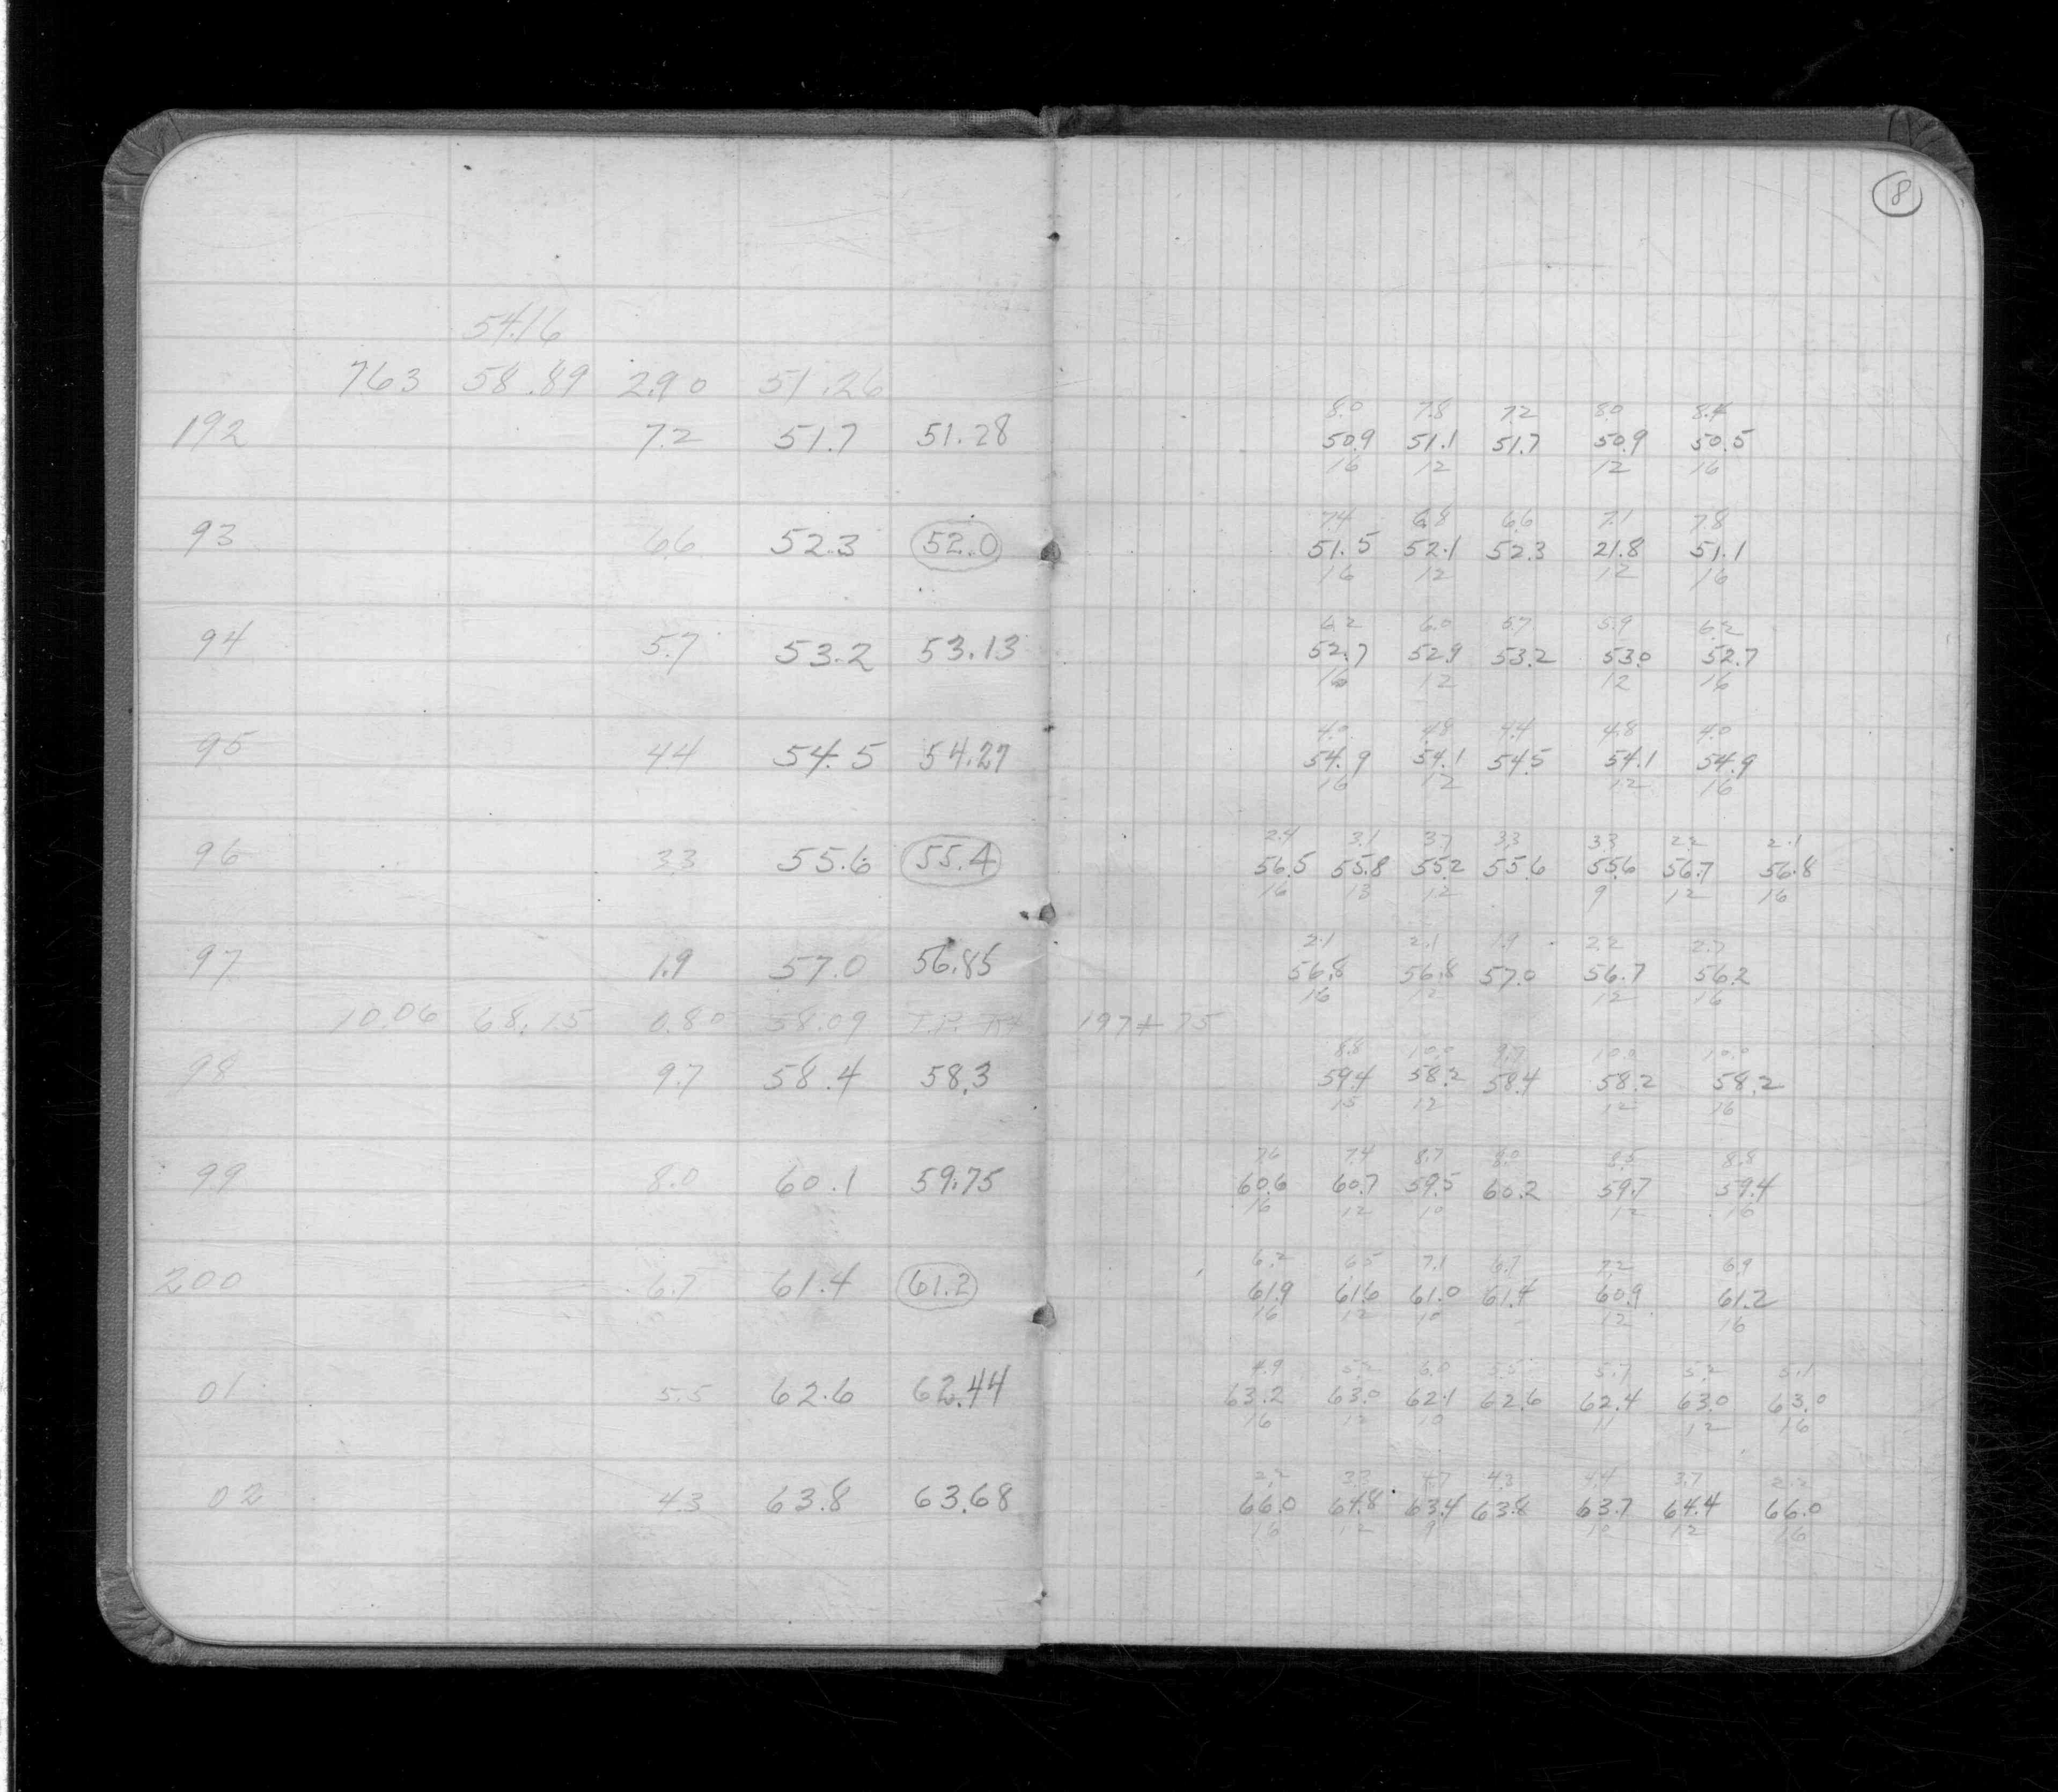 18
54.16
7.63 58.89 2.90 51.26
8.0 7.8 7.2 8.0 8.4
192 7.2 51.7 51.28 50.9 51.1 51.7 50.9 50.5
16 12 12 16
7.4 6.8 6.6 7.1 7.8
93 6.6 52.3 52.0 51.5 52.1 52.3 21.8 51.1
16 12 12 16
6.2 6.0 5.7 5.9 6.2
94 5.7 53.2 53.13 52.7 52.9 53.2 53.0 52.7
16 12 12 16
4.0 4.8 4.4 4.8 4.0
95 4.4 54.5 54.27 54.9 54.1 54.5 54.1 54.9
16 12 12 16
2.4 3.1 3.7 3.3 3.3 2.2 2.1
96 3.3 55.6 55.4 56.5 55.8 55.2 55.6 55.6 56.7 56.8
16 13 12 9 12 16
2.1 2.1 1.9 2.2 2.7
97 1.9 57.0 56.85 56.8 56.8 57.0 56.7 56.2
16 12 12 16
10.06 68.15 0.80 58.09 T.P. 197+75
8.8 10.0 9.7 10.0 10.0
98 9.7 58.4 58.3 59.4 58.2 58.4 58.2 58.2
15 12 12 16
7.6 7.4 8.7 8.0 8.5 8.8
99 8.0 60.1 59.75 60.6 60.7 59.5 60.2 59.7 59.4
16 12 10 12 16
6.2 6.5 7.1 6.7 7.2 6.9
200 6.7 61.4 61.2 61.9 61.6 61.0 61.4 60.9 61.2
16 12 10 12 16
4.9 5.2 6.0 5.5 5.7 5.2 5.1
01 5.5 62.6 62.44 63.2 63.0 62.1 62.6 62.4 63.0 63.0
16 12 10 11 12 16
2.2 3.3 4.7 4.3 4.4 3.7 2.2
02 4.3 63.8 63.68 66.0 64.8 63.4 63.8 63.7 64.4 66.0
16 12 9 10 12 16